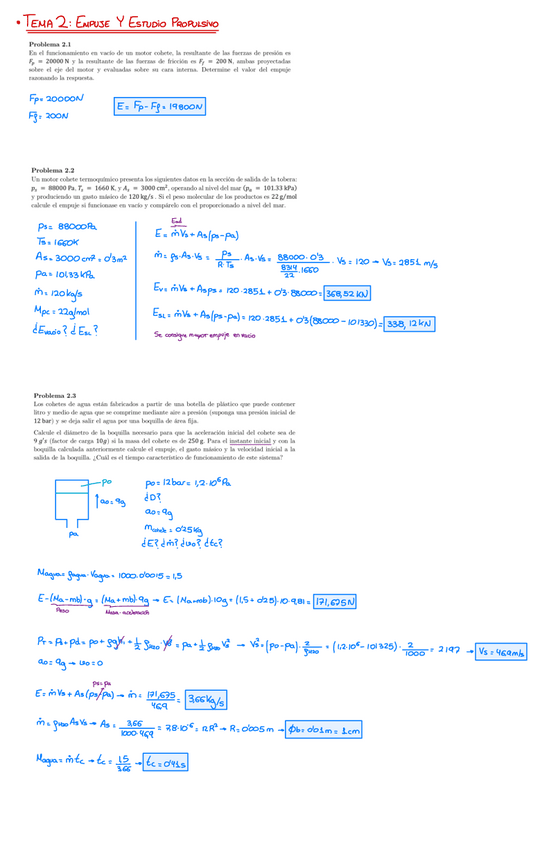 • TEMA 2: EMPUJE Y ESTUDIO PROPULSIVO
Problema 2.1
En el funcionamiento en vacío de un motor cohete, la resultante de las fuerzas de presión es
Fp = 20000 N y la resultante de las fuerzas de fricción es Ff = 200 N, ambas proyectadas
sobre el eje del motor y evaluadas sobre su cara interna. Determine el valor del empuje
razonando la respuesta.
Fp = 20000N
E = Fp - Ff = 19800N
Ff = 200N
Problema 2.2
Un motor cohete termoquímico presenta los siguientes datos en la sección de salida de la tobera:
ps = 88000 Pa, Ts = 1660 K, y As = 3000 cm², operando al nivel del mar (pa = 101.33 kPa)
y produciendo un gasto másico de 120 kg/s. Si el peso molecular de los productos es 22 g/mol
calcule el empuje si funcionase en vacío y compárelo con el proporcionado a nivel del mar.
ps = 88000Pa
Ts = 1660K
As = 3000 cm² = 0'3m²
pa = 101,33 kPa
ṁ = 120kg/s
Mpc = 22g/mol
¿Evacio? ¿ESL?
E = ṁVs + As(ps-pa)
ṁ = ρs·As·Vs = ps / (R·Ts) · As·Vs = 88000·0'3 / (8314/22 · 1660) · Vs = 120 → Vs = 2851 m/s
Ev = ṁVs + Asps = 120·2851 + 0'3·88000 = 368,52 kN
ESL = ṁVs + As(ps-pa) = 120·2851 + 0'3(88000 - 101330) = 338,12kN
Se consigue mayor empuje en vacío
Problema 2.3
Los cohetes de agua están fabricados a partir de una botella de plástico que puede contener
litro y medio de agua que se comprime mediante aire a presión (suponga una presión inicial de
12 bar) y se deja salir el agua por una boquilla de área fija.
Calcule el diámetro de la boquilla necesario para que la aceleración inicial del cohete sea de
9 g's (factor de carga 10g) si la masa del cohete es de 250 g. Para el instante inicial y con la
boquilla calculada anteriormente calcule el empuje, el gasto másico y la velocidad inicial a la
salida de la boquilla. ¿Cuál es el tiempo característico de funcionamiento de este sistema?
po
ao = 9g
pa
po = 12bar = 1,2·10⁶Pa
¿D?
ao = 9g
mcohete = 0'25kg
¿E? ¿ṁ? ¿vso? ¿tc?
Magua = ρagua·Vagua = 1000·0'0015 = 1,5
E-(Ma-mb)·g = (Ma+mb)·9g → E = (Ma+mb)·10g = (1,5 + 0'25)·10·9,81 = 171,675N
Peso
Masa·aceleración
PT = ps + pd = po + ρgh + ½ρH2O·v0² = pa + ½ρH2O Vs² → Vs² = (po-pa)·2/ρH2O = (1,2·10⁶ - 101325)·2/1000 = 2197 → Vs = 46,9m/s
ao = 9g → vo = 0
ps=pa
E = ṁVs + As(ps-pa) → ṁ = 171,675/46,9 = 3,66 kg/s
ṁ = ρH2O As Vs → As = 3,66 / (1000·46,9) = 7,8·10⁻⁵ = πR² → R = 0'005m → Φb = 0'01m = 1cm
Magua = ṁtc → tc = 1,5/3,66 → tc = 0'41s